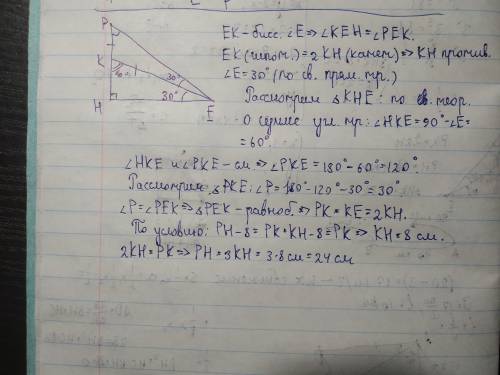 P
K
H
60°
30°
30°
E
EK-бисс. ∠E ⇒ ∠KEH = ∠PEK.
EK (гипот.) = 2KH (катет) ⇒ KH против
∠E = 30° (по св. прям. тр.)
Рассмотрим △KHE: по св. теор.
О сумме угл. тр.: ∠HKE = 90° - ∠E =
= 60°.
∠HKE и ∠PKE - см. ⇒ ∠PKE = 180° - 60° = 120°.
Рассмотрим △PKE: ∠P = 180° - 120° - 30° = 30°
∠P = ∠PEK ⇒ △PEK - равноб. ⇒ PK = KE = 2KH.
По условию: PH - 8 = PK + KH - 8 = PK ⇒ KH = 8 см.
2KH = PK ⇒ PH = 3KH = 3·8см = 24 см